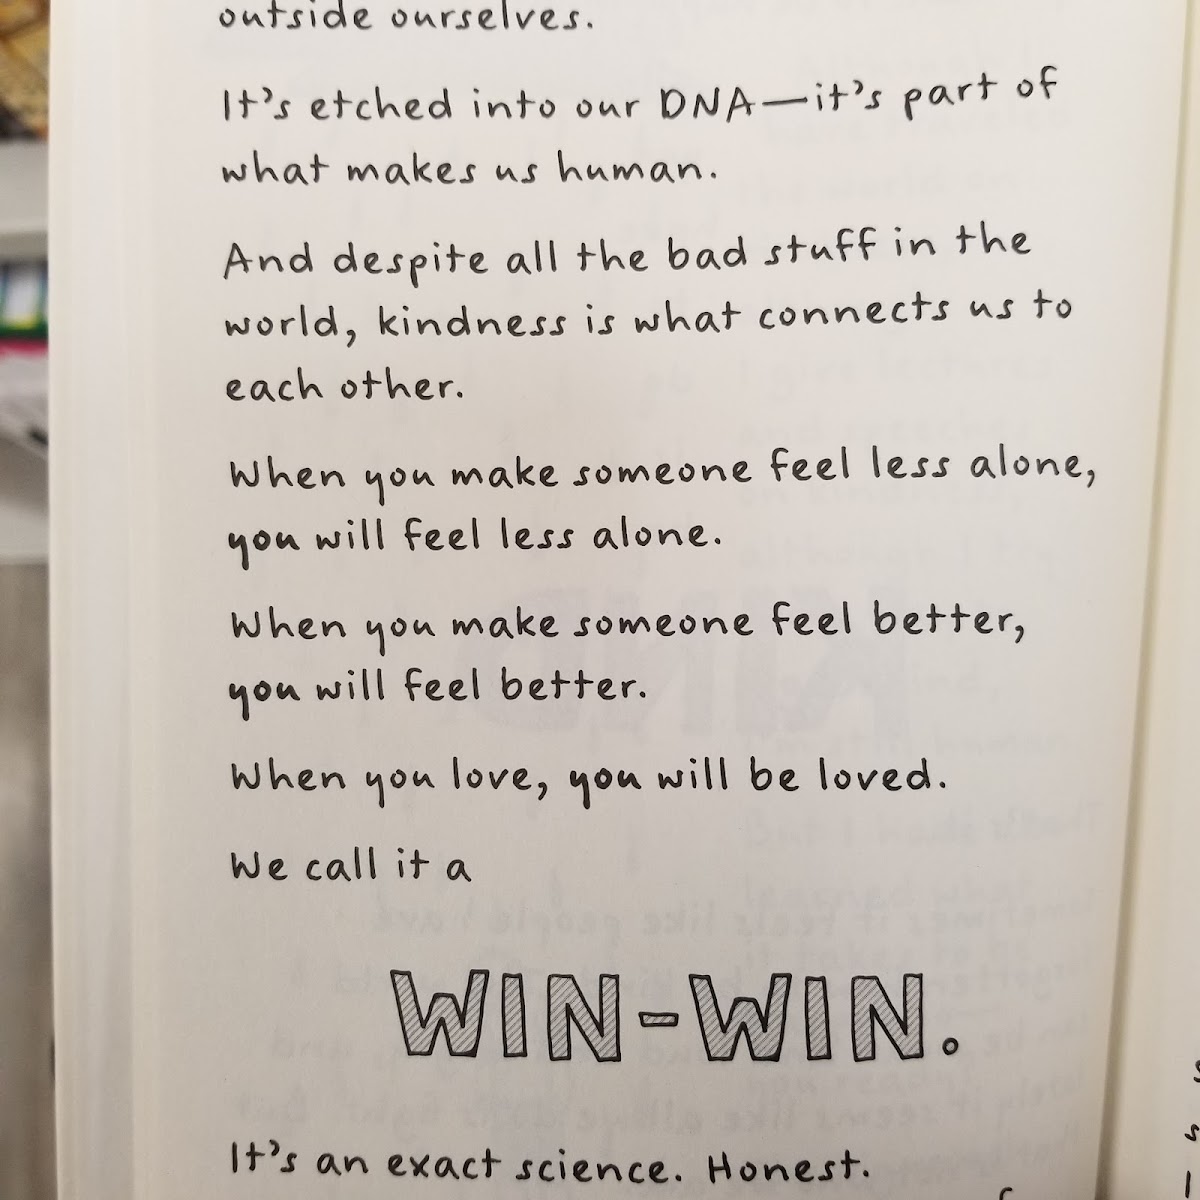 outside ourselves.
It's etched into our DNA—it's part of
what makes us human.
And despite all the bad stuff in the
world, kindness is what connects us to
each other.
When you make someone feel less alone,
you will feel less alone.
When you make someone feel better,
you will feel better.
When you love, you will be loved.
We call it a
WIN-WIN.
It's an exact science. Honest.